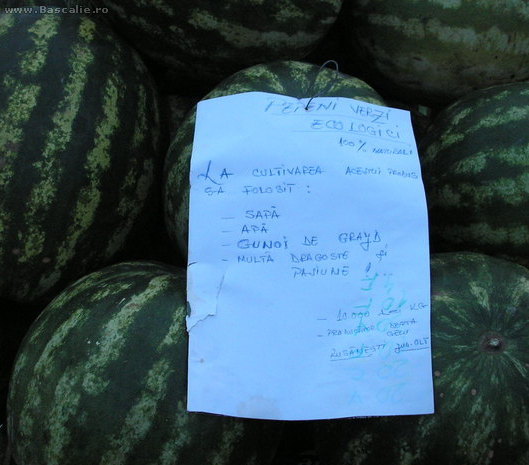 www.Bascalie.ro
PEPENI VERZI
ECOLOGICI
100% NATURALI
LA CULTIVAREA ACESTUI PRODUS
S-A FOLOSIT :
- SAPĂ
- APĂ
- GUNOI DE GRAJD
- MULTĂ DRAGOSTE și
PASIUNE !
- 10 000 LEI KG
- PRODUCĂTOR
RUSĂNEȘTI JUD. OLT